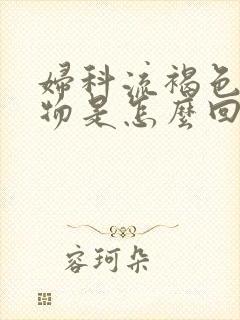 婦科流褐色
物是怎麼回
容珂朵